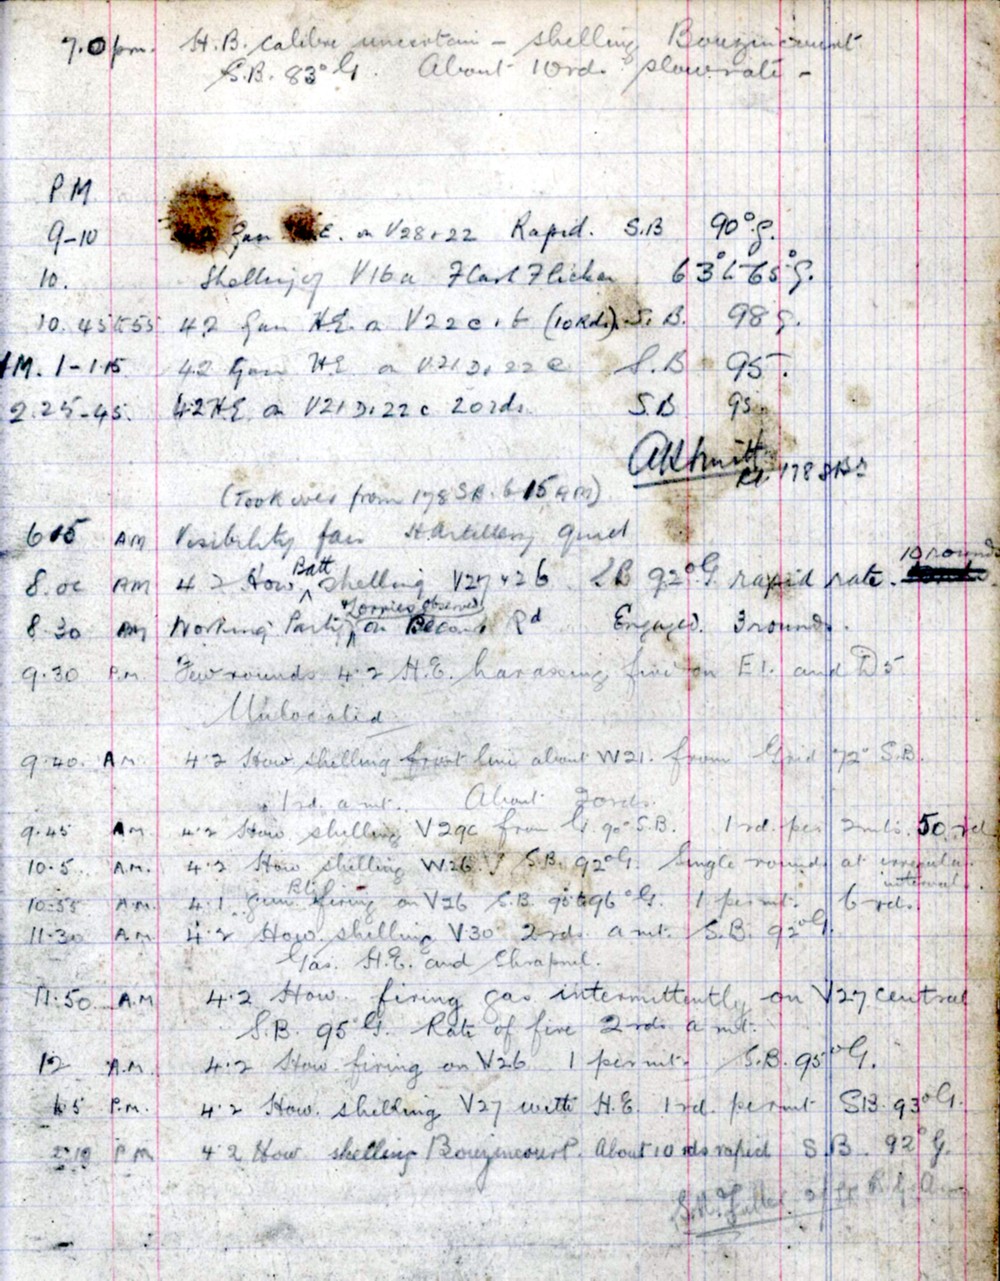 7.0 pm. H.B. calibre uncertain - shelling Bouzincourt
S.B. 83° G. About 10 rds slow rate -
PM
9-10 Gun H.E. on V28 & 22 Rapid. S.B 90° g.
10. Shelling of V16a Flash Flicker 63° & 65° g.
10.45 to 55 42 Gun HE on V22c & b (10 Rds). S.B. 98 g.
AM. 1-1.15 42 Gun HE on V21D, 22c S.B 95.
2.25-45. 42 H.E. on V21D, 22c 20 rds. S.B 95
(Took over from 178 S.B. 6.15 AM) 178 SBs
6.15 AM Visibility fair H. Artillery quiet
10 rounds
8.00 AM 4.2 How Batt shelling V27 & 26 S.B 92° G. rapid rate.
& Lorries observed
8.30 AM Working Party on Rd Engaged. 3 rounds.
9.30 P.M. Few rounds 4.2 H.E. harassing fire on E1. and D5
Unlocated
9.40. A.M. 4.2 How shelling front line about W21. from Grid 72° S.B.
1 rd. a mt. About 20 rds.
9.45 A.M. 4.2 How shelling V29c from G. 90° S.B. 1 rd. per 2 mts. 50 rds
10.5 A.M. 4.2 How shelling W26 S.B. 92° G. Single rounds at irregular
intervals.
10.55 A.M. 4.1 gun Bty firing on V26 S.B. 95 to 96° G. 1 per mt. 6 rds.
11.30 A.M. 4.2 How. shelling V.30 2 rds. a mt. S.B. 92° G.
Gas. H.E. and Shrapnel.
11.50 A.M 4.2 How firing gas intermittently on V27 central
S.B. 95° G. Rate of fire 2 rds a mt.
12 A.M. 4.2 How firing on V26 1 per mt. S.B. 95° G.
1.5 P.M. 4.2 How. shelling V27 with H.E. 1 rd. per mt SB. 93° G.
2.10 PM 4.2 How shelling Bouzincourt. About 10 rds rapid S.B. 92° G.
R.G.A.